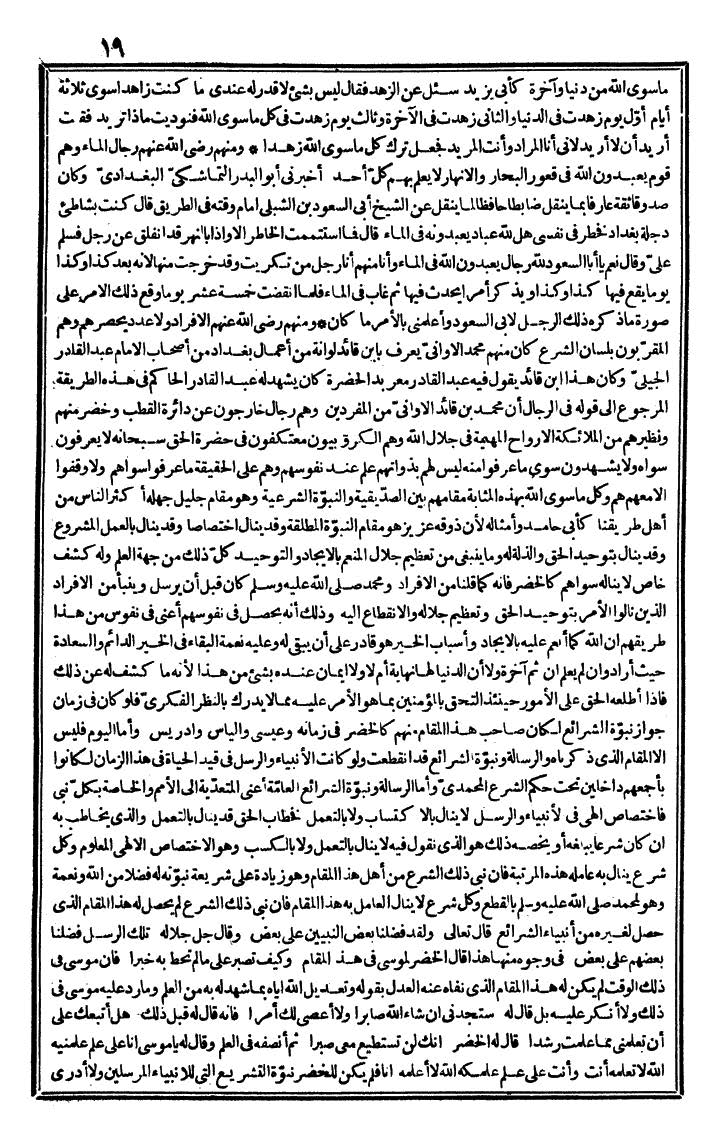 ١٩
ماسوى الله من دنيا وآخرة كأبى يزيد سئل عن الزهد فقال ليس بشئ لاقدرله عندى ما كنت زاهدا سوى ثلاثة
أيام أوّل يوم زهدت فى الدنيا والثانى زهدت فى الآخرة وثالث يوم زهدت فى كل ماسوى الله فنوديت ماذا تريد فقلت
أريد أن لا أريد لانى أنا المراد وأنت المريد فجعل ترك كل ماسوى الله زهدا * ومنهم رضى الله عنهم رجال الماء وهم
قوم يعبدون الله فى قعور البحار والانهار لا يعلم بهم كلّ أحد أخبرنى أبو البدر التماشكىّ البغدادىّ وكان
صدوقا ثقة عارفا بما ينقل ضابطا حافظا لما ينقل عن الشيخ أبى السعود بن الشبلى امام وقته فى الطريق قال كنت بشاطئ
دجلة بغداد فخطر فى نفسى هل لله عباد يعبدونه فى الماء قال فما استتممت الخاطر الا واذا بالنهر قد انفلق عن رجل فسلم
علىّ وقال نعم يا أبا السعود لله رجال يعبدون الله فى الماء وأنا منهم أنا رجل من تكريت وقد خرجت منها لانه بعد كذا وكذا
يوما يقع فيها كذا وكذا ويذكر أمرا يحدث فيها ثم غاب فى الماء فلما انقضت خمسة عشر يوما وقع ذلك الامر على
صورة ماذكره ذلك الرجل لابى السعود وأعلمنى بالأمر ما كان * ومنهم رضى الله عنهم الافراد ولا عدد يحصرهم وهم
المقرّبون بلسان الشرع كان منهم محمد الاوانىّ يعرف بابن قائد لوانة من أعمال بغداد من أصحاب الامام عبد القادر
الجيلىّ وكان هذا ابن قائد يقول فيه عبد القادر معربد الحضرة كان يشهدله عبد القادر الحاكم فى هذه الطريقة
المرجوع الى قوله فى الرجال أن محمد بن قائد الاوانىّ من المفردين وهم رجال خارجون عن دائرة القطب وخضر منهم
ونظيرهم من الملائكة الارواح المهيمة فى جلال الله وهم الكروبيون معتكفون فى حضرة الحق سبحانه لا يعرفون
سواه ولا يشهدون سوى ماعرفوا منه ليس لهم بذواتهم علم عند نفوسهم وهم على الحقيقة ماعرفوا سواهم ولا وقفوا
الا معهم هم وكل ماسوى الله بهذه المثابة مقامهم بين الصدّيقية والنبوّة الشرعية وهو مقام جليل جهله أكثر الناس من
أهل طريقنا كأبى حامد وأمثاله لأن ذوقه عزيز هو مقام النبوّة المطلقة وقد ينال اختصاصا وقد ينال بالعمل المشروع
وقد ينال بتوحيد الحق والذلة له وما ينبغى من تعظيم جلال المنعم بالايجاد والتوحيد كلّ ذلك من جهة العلم وله كشف
خاص لا يناله سواهم كالخضر فانه كما قلنا من الافراد ومحمد صلى الله عليه وسلم كان قبل أن يرسل وينبأ من الافراد
الذين نالوا الأمر بتوحيد الحق وتعظيم جلاله والانقطاع اليه وذلك أنه يحصل فى نفوسهم أعنى فى نفوس من هذا
طريقهم ان الله كما أنعم عليه بالايجاد وأسباب الخير هو قادر على أن يبقى له وعليه نعمة البقاء فى الخير الدائم والسعادة
حيث أراد وان لم يعلم ان ثم آخرة ولا أن الدنيا لها نهاية أم لا ولا ايمان عنده بشئ من هذا لأنه ما كشف له عن ذلك
فاذا أطلعه الحق على الأمور حينئذ التحق بالمؤمنين بما هو الأمر عليه مما لا يدرك بالنظر الفكرىّ فلو كان فى زمان
جواز نبوّة الشرائع لكان صاحب هذا المقام منهم كالخضر فى زمانه وعيسى والياس وادريس وأما اليوم فليس
الا المقام الذى ذكرناه والرسالة ونبوّة الشرائع قد انقطعت ولو كانت الأنبياء والرسل فى قيد الحياة فى هذا الزمان لكانوا
بأجمعهم داخلين تحت حكم الشرع المحمدىّ وأما الرسالة ونبوّة الشرائع العامّة أعنى المتعدّية الى الأمم والخاصة بكلّ نبى
فاختصاص الهى فى الأنبياء والرسل لا ينال بالاكتساب ولا بالتعمل فخطاب الحق قد ينال بالتعمل والذى يخاطب به
ان كان شرعا يبلغه أو يخصه ذلك هو الذى نقول فيه لا ينال بالتعمل ولا بالكسب وهو الاختصاص الالهى المعلوم وكل
شرع ينال به عامله هذه المرتبة فان نبى ذلك الشرع من أهل هذا المقام وهو زيادة على شريعة نبوّته له فضلا من الله ونعمة
وهو لمحمد صلى الله عليه وسلم بالقطع وكل شرع لا ينال العامل به هذا المقام فان نبى ذلك الشرع لم يحصل له هذا المقام الذى
حصل لغيره من أنبياء الشرائع قال تعالى ولقد فضلنا بعض النبيين على بعض وقال جل جلاله تلك الرسل فضلنا
بعضهم على بعض فى وجوه منها هذا قال الخضر لموسى فى هذا المقام وكيف تصبر على مالم تحط به خبرا فان موسى فى
ذلك الوقت لم يكن له هذا المقام الذى نفاه عنه العدل بقوله وتعديل الله اياه بما شهد له به من العلم وما ردّ عليه موسى فى
ذلك ولا أنكر عليه بل قال له ستجدنى ان شاء الله صابرا ولا أعصى لك أمرا فانه قال له قبل ذلك هل أتبعك على
أن تعلمنى مما علمت رشدا قال له الخضر انك لن تستطيع معى صبرا ثم أنصفه فى العلم وقال له يا موسى انا على علم علمنيه
الله لا تعلمه أنت وأنت على علم علمكه الله لا أعلمه انا فلم يكن للخضر نبوّة التشريع التى للانبياء المرسلين ولا أدرى